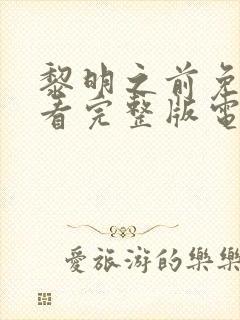 黎明之前免
看完整版電
愛旅游的樂樂